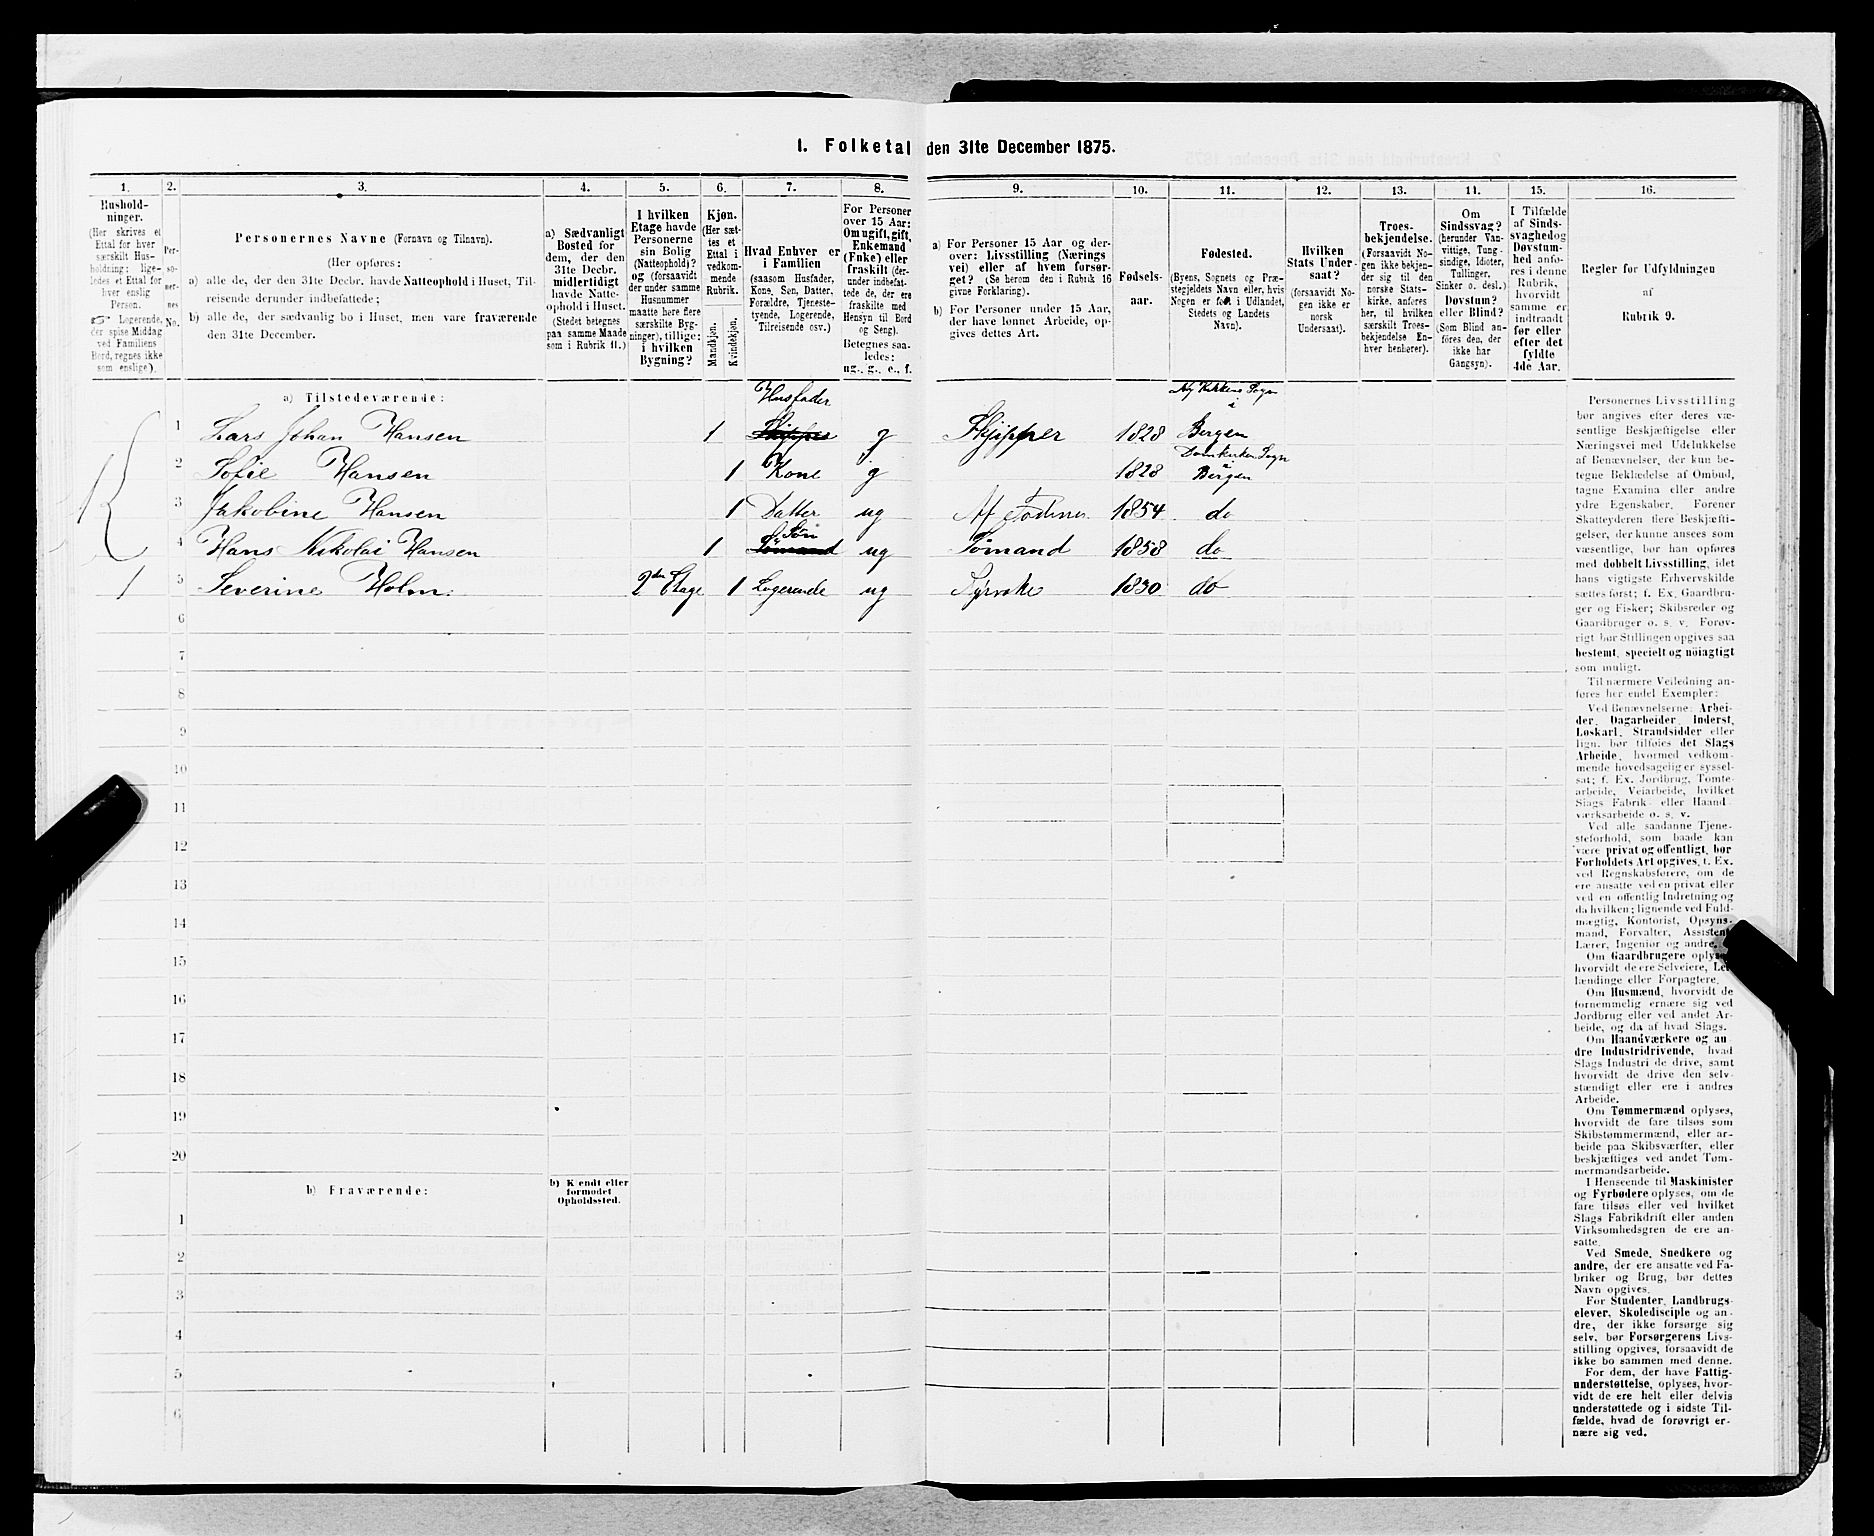 1. Folketal den 31te December 1875.
1. 2. 3. 4. 5. 6. 7. 8. 9. 10. 11. 12. 13. 14. 15. 16.
Hushold-
ninger.
(Her skrives et
Ettal for hver
særskilt Hus-
holdning; lige-
ledes et Ettal for
hver enslig
Person.
☞ Logerende,
der spise Middag
ved Familiens
Bord, regnes ikke
som enslige).
Per-
so-
ner-
nes
No.
Personernes Navne (Fornavn og Tilnavn).
(Her opføres:
a) alle de, der den 31te Decbr. havde Natteophold i Huset, Til-
reisende derunder indbefattede;
b) alle de, der sædvanlig bo i Huset, men vare fraværende
den 31te December.
a) Sædvanligt
Bosted for
dem, der den
31te Decbr.
midlertidigt
havde Natte-
ophold i Huset.
(Stedet betegnes
paa samme Maade
som i Rubrik 11.)
I hvilken
Etage havde
Personerne
sin Bolig
(Natteophold)?
og (forsaavidt
der under samme
Husnummer
maatte høre flere
særskilte Byg-
ninger), tillige:
i hvilken
Bygning?
Kjøn.
(Her sæt-
tes et
Ettal i
vedkom-
mende
Rubrik.
Mandkjøn.
Kvindekjøn.
Hvad Enhver er
i Familien
(saasom Husfader,
Kone, Søn, Datter,
Forældre, Tjeneste-
tyende, Logerende,
Tilreisende osv.)
For Personer
over 15 Aar:
Om ugift, gift,
Enkemand
(Enke) eller
fraskilt (der-
under indbefat-
tede de, der ere
fraskilte med
Hensyn til Bord
og Seng).
Betegnes saa-
ledes:
ug., g., e., f.
a) For Personer 15 Aar og der-
over: Livsstilling (Nærings
vei) eller af hvem forsør-
get? (Se herom den i Rubrik 16
givne Forklaring).
b) For Personer under 15 Aar,
der have lønnet Arbeide, op-
gives dettes Art.
Fødsels-
aar.
Fødested.
(Byens, Sognets og Præ-
stegjeldets Navn eller, hvis
Nogen er født i Udlandet,
Stedets og Landets
Navn).
Hvilken
Stats Under-
saat?
(forsaavidt No-
gen ikke er
norsk
Undersaat).
Troes-
bekjendelse.
(Forsaavidt No-
gen ikke bekjen-
der sig til den
norske Stats-
kirke, anføres
her, til hvilken
særskilt Troes-
bekjendelse En-
hver henhører).
Om
Sindssvag?
(herunder Van-
vittige, Tung-
sindige, Idioter,
Tullinger,
Sinker o. desl.)
Døvstum?
eller Blind?
(Som Blind an-
føres den, der
ikke har
Gangsyn).
I Tilfælde
af Sinds-
svaghed og
Døvstum-
hed anfø-
res i denne
Rubrik,
hvorvidt
samme er
indtraadt
før eller
efter det
fyldte
4de Aar.
Regler for Udfyldningen
af
Rubrik 9.
a) Tilstedeværende:
Husfader
Ny Kirkens Sogn
i
1 Lars Johan Hansen 1 Skipper g Skjipper 1828 Bergen
Domkirkens Sogn
2 Sofie Hansen 1 Kone g 1828 Bergen
3 Jakobine Hansen 1 Datter ug Af Faderen 1854 do
Søn
4 Hans Nikolai Hansen 1 Sømand ug Sømand 1858 do
1 5 Severine Holm 2den Etage 1 Logerende ug Syrske 1830 do
6
7
8
9
10
11
12
13
14
15
16
17
18
19
20
b) Fraværende:
b) Kendt eller
formodet
Opholdssted.
1
2
3
4
5
6
Personernes Livsstilling
bør angives efter deres væ-
sentlige Beskjæftigelse eller
Næringsvei med Udelukkelse
af Benævnelser, der kun be-
tegne Beklædelse af Ombud,
tagne Examina eller andre
ydre Egenskaber. Forener
Skatteyderen flere Beskjæfti-
gelser, der kunne ansees som
væsentlige, bør han opføres
med dobbelt Livsstilling, idet
hans vigtigste Erhvervskilde
sættes først; f. Ex. Gaardbru-
ger og Fisker; Skibsreder og
Gaardbruger o. s. v. Forøv-
rigt bør Stillingen opgives saa
bestemt, specielt og nöiagtigt
som muligt.
Til nærmere Veiledning an-
føres her endel Exempler:
Ved Benævnelserne: Arbei-
der, Dagarbeider, Inderst,
Løskarl, Strandsidder eller
lign. bør tilføies det Slags
Arbeide, hvormed vedkom-
mende hovedsagelig er syssel-
sat; f. Ex. Jordbrug, Tomte-
arbeide, Veiarbeide, hvilket
Slags Fabrik- eller Haand-
værksarbeide o. s. v.
Ved alle saadanne Tjene-
steforhold, som baade kan
være privat og offentligt, bør
Forholdets Art opgives, t. Ex.
ved Regnskabsførere, om de
ere ansatte ved en privat eller
ved en offentlig Indretning og
da hvilken; lignende ved Fuld-
mægtig, Kontorist, Opsyns-
mand, Forvalter, Assistent,
Lærer, Ingeniør og andre.
Om Gaardbrugere oplyses,
hvorvidt de ere Selveiere, Lei-
lændinge eller Forpagtere.
Om Husmænd, hvorvidt de
fornemmelig ernære sig ved
Jordbrug eller ved andet Ar-
beide, og da af hvad Slags.
Om Haandværkere og an-
dre Industridrivende, hvad
Slags Industri de drive, samt
hvorvidt de drive den selv-
stændigt eller ere i andres
Arbeide.
Om Tømmermænd oplyses,
hvorvidt de fare tilsøs som
Skibstømmermænd, eller ar-
beide paa Skibsværfter, eller
beskjæftiges ved andet Tøm-
mermandsarbeide.
I Henseende til Maskinister
og Fyrbødere oplyses, om de
fare tilsøs eller ved hvilket
Slags Fabrikdrift eller anden
Virksomhedsgren de ere an-
satte.
Ved Smede, Snedkere og
andre, der ere ansatte ved Fa-
briker og Brug, bør dettes
Navn opgives.
For Studenter, Landbrugs-
elever, Skoledisciple og an-
dre, der ikke forsørge sig
selv, bør Forsørgerens Livs-
stilling opgives, forsaavidt de
ikke bo sammen med denne.
For dem, der have Fattig-
understøttelse, oplyses, hvor-
vidt de ere helt eller delvis
understøttede og i sidste Til-
fælde, hvad de forøvrigt er-
nære sig ved.